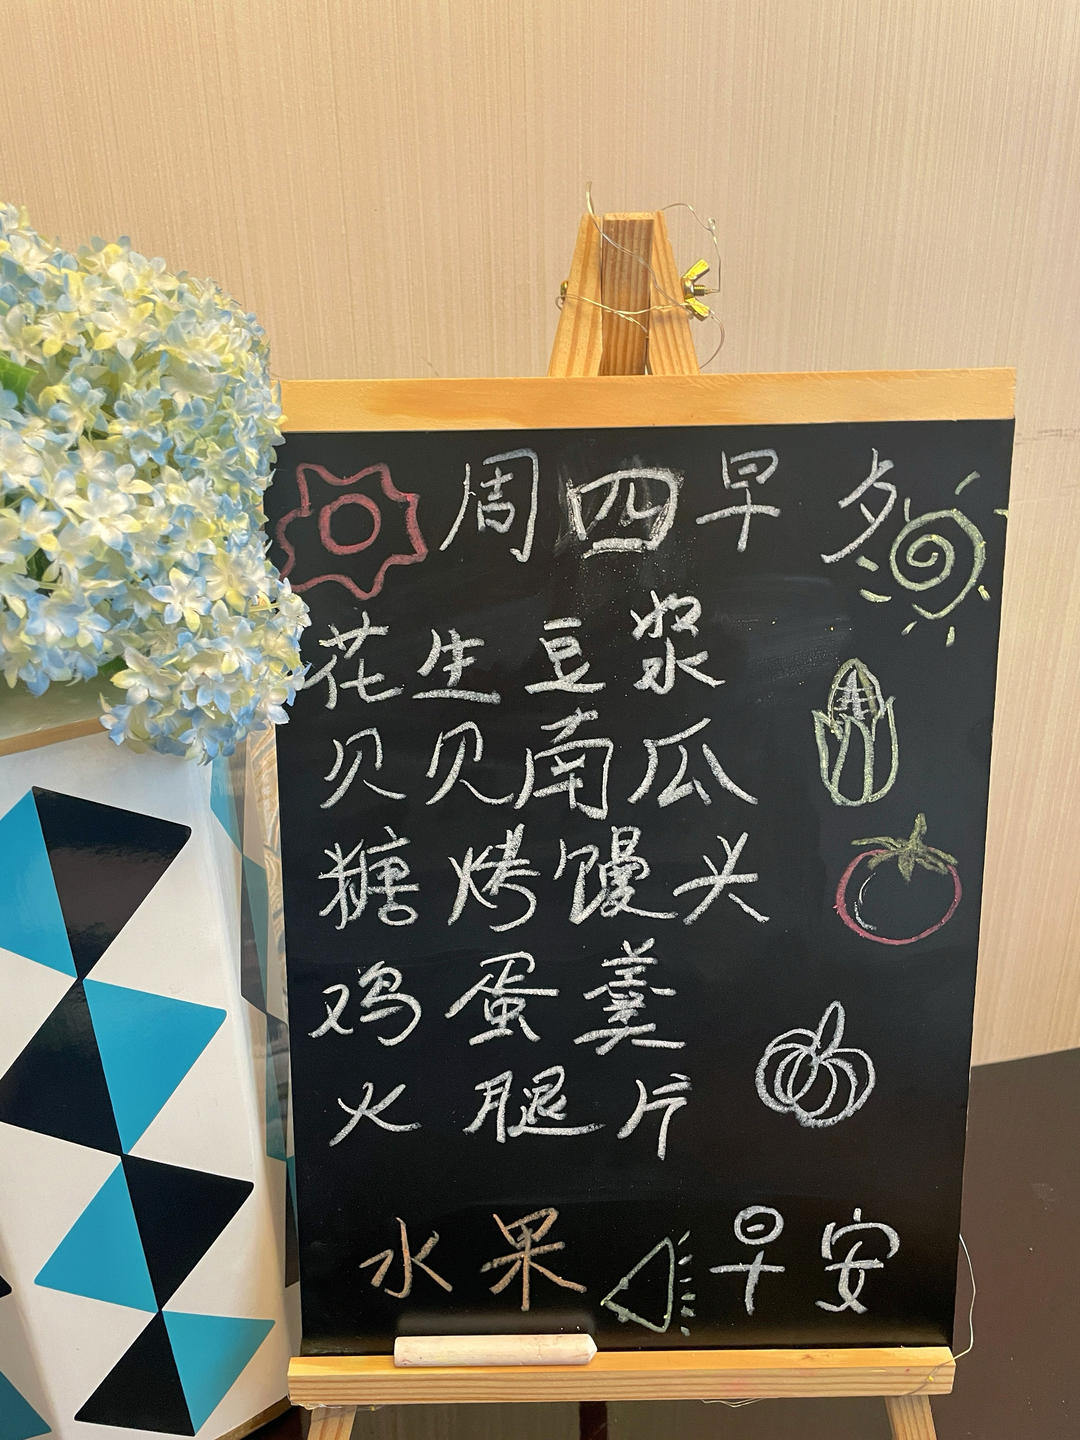 周四早夕
花生豆浆
贝贝南瓜
糖烤馒头
鸡蛋羹
火腿片
水果 早安